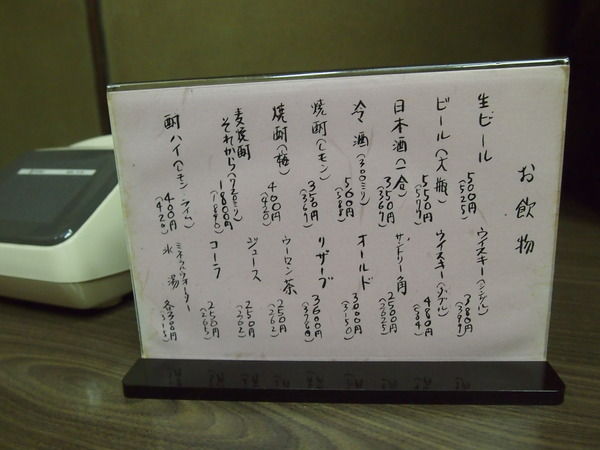 お飲物
生ビール 500円
(525)
ウイスキー(シングル) 380円
(399)
ビール(大瓶) 550円
(577)
ウイスキー(ダブル) 480円
(504)
日本酒(一合) 350円
(367)
サントリー角 2500円
(2625)
冷酒(300ミリ) 560円
(588)
オールド 3000円
(3150)
焼酎(レモン) 350円
(367)
リザーブ 3600円
(3780)
焼酎(梅) 400円
(420)
ウーロン茶 250円
(262)
麦焼酎
それから(720ミリ) 1800円
(1890)
ジュース 250円
(262)
コーラ 250円
(265)
酎ハイ(レモン・ライム) 400円
(420)
ミネラルウォーター
氷 湯 各300円
(315)